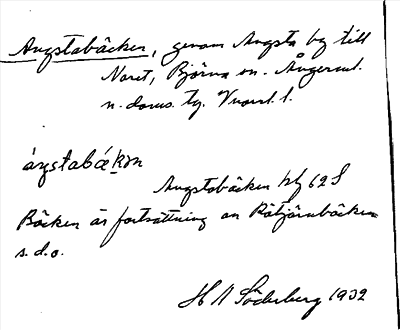 Angstabäcken, genom Angsta by till
Noret, Björna sn. Ångerml.
n. doms. tg.
ángstabǽkən
Angstabäcken hbl 62 S
Bäcken är fortsättning av Rötjärnbäcken
s.d.o.
H N Söderberg 1932